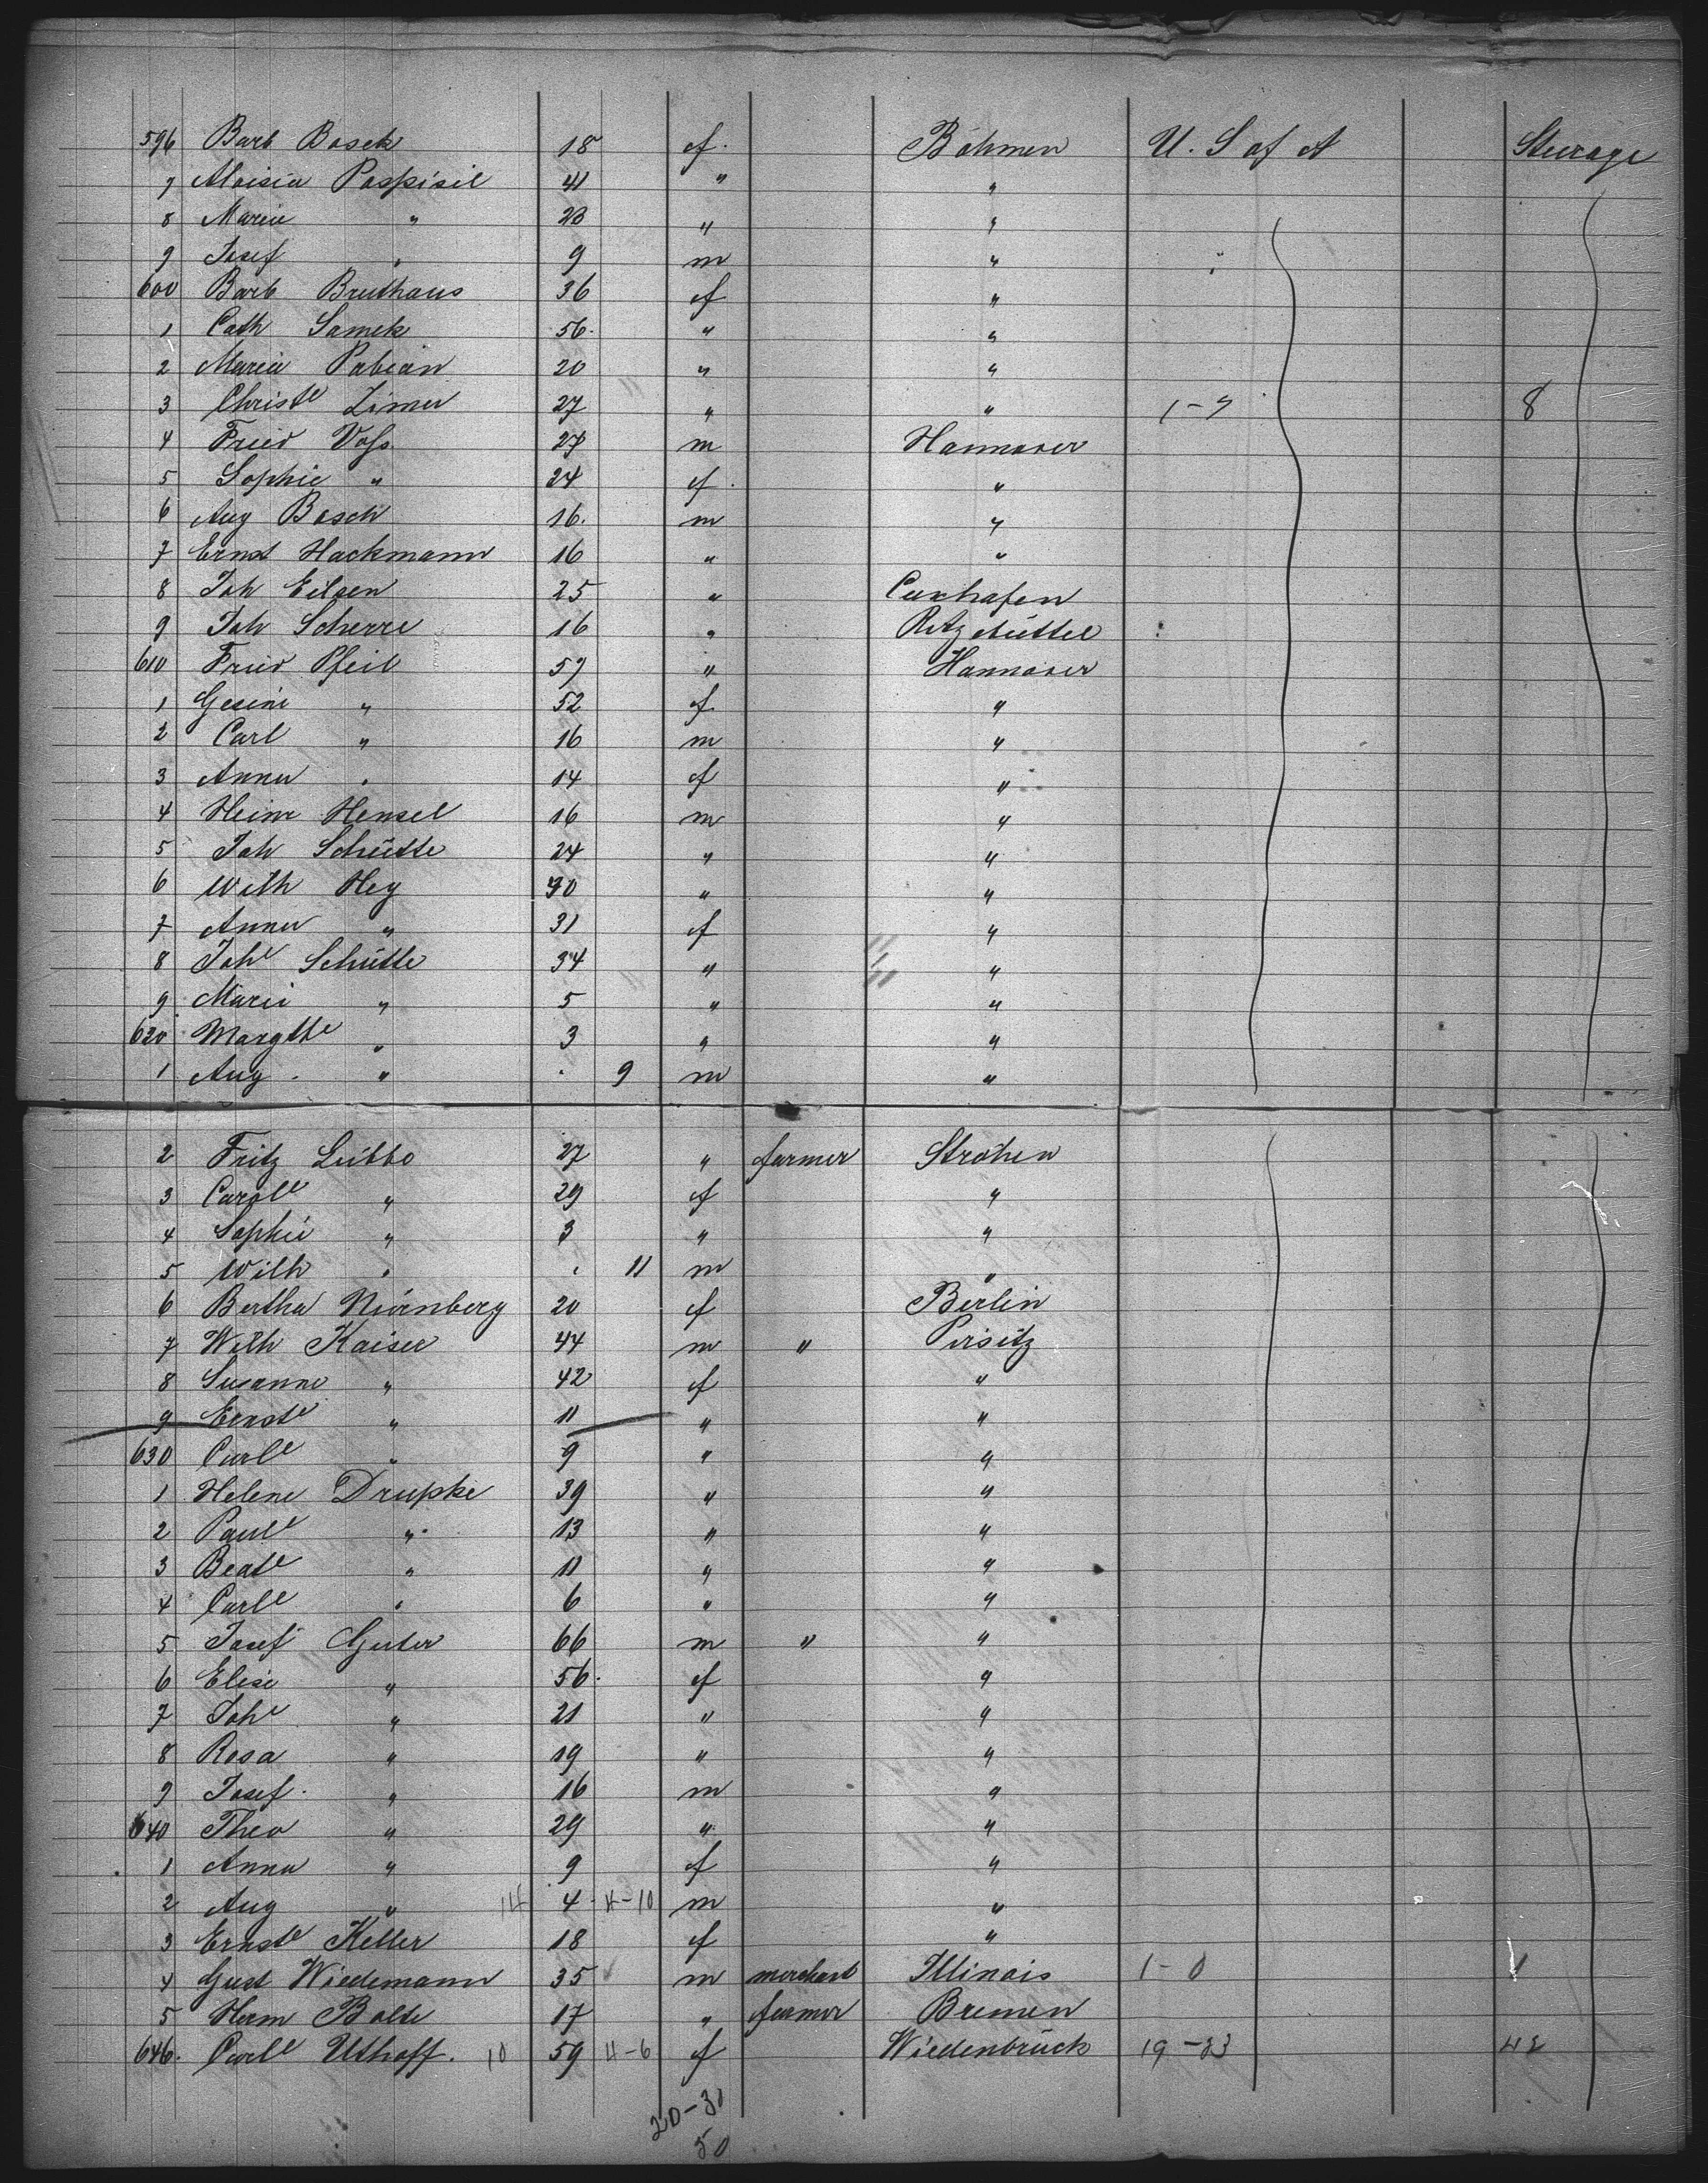 596 Barb Bosek 18 f. Böhmen U. S of A Steerage
7 Aloisia Pospisil 41 " "
8 Marie " 23 " "
9 Josef " 9 m "
600 Barb Bruthans 36 f "
1 Cath Samek 56. " "
2 Maria Pabian 20 " "
3 Christe Zimer 27 " " 1-7 8
4 Fried Voss 27 m Hannover
5 Sophie " 24 f. "
6 Aug Bosch 16. m "
7 Ernst Hackmann 16 " "
8 Joh Eilsen 25 " Cuxhafen
9 Joh Scherre 16 " Ritzebüttel
610 Fried Pfeil 57 " Hannover
1 Gesine " 52 f "
2 Carl " 16 m "
3 Anna " 14 f "
4 Heinr Hensel 16 m "
5 Joh Schütte 24 " "
6 Wilh Hey 30 " "
7 Anna " 31 f "
8 Johe Schütte 34 " "
9 Marie " 5 " "
620 Margtte " 3 " "
1 Aug. " . 9 m "
2 Fritz Lübbo 27 " farmer Ströhen
3 Carole " 29 f "
4 Sophie " 3 " "
5 Wilh " . 11 m "
6 Bertha Nürnberg 20 f Berlin
7 Wilh Kaiser 44 m " Pirsitz
8 Susanne " 42 f "
9 Ernste " 11 " "
630 Carle " 9 " "
1 Helene Drupke 39 " "
2 Paule " 13 " "
3 Beate " 11 " "
4 Carle " 6 " "
5 Josef Guter 66 m " "
6 Elise " 56. f "
7 Johe " 21 " "
8 Rosa " 19 " "
9 Josef. " 16 m "
640 Theo " 29 " "
1 Anna " 9 f "
2 Aug " 14 4 4-10 m "
3 Ernste Keller 18 f "
4 Gust Wiedemann 35 m merchant Illinois 1-0 1
5 Herm Bolte 17 " farmer Bremen
646. Carle Uthoff. 10 59 4-6 f Wiedenbrück 19-23 42
20-30
50